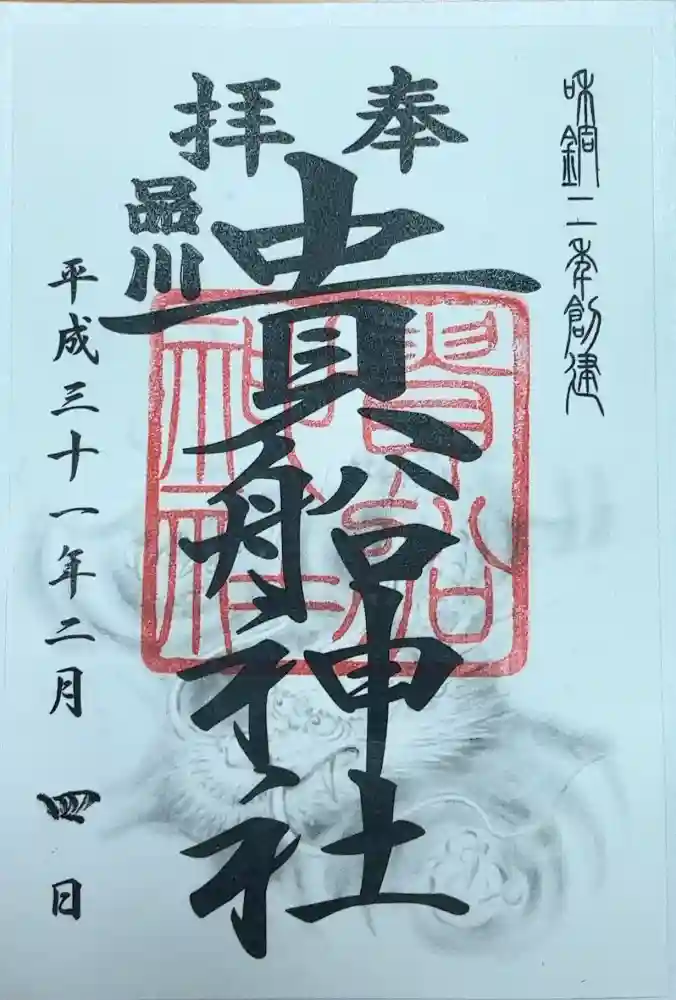 和銅二年創建
奉拝
貴船神社
品川
貴船神社
平成三十一年二月 四日